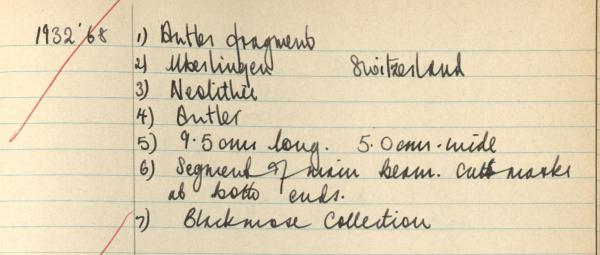 1932'68 1) Antler fragment
2) Uberlingen Switzerland
3) Neolithic
4) Antler
5) 9.5 cms long. 5.0 cms. wide
6) Segment of main beam. Cut marks
at both ends.
7) Blackmore Collection